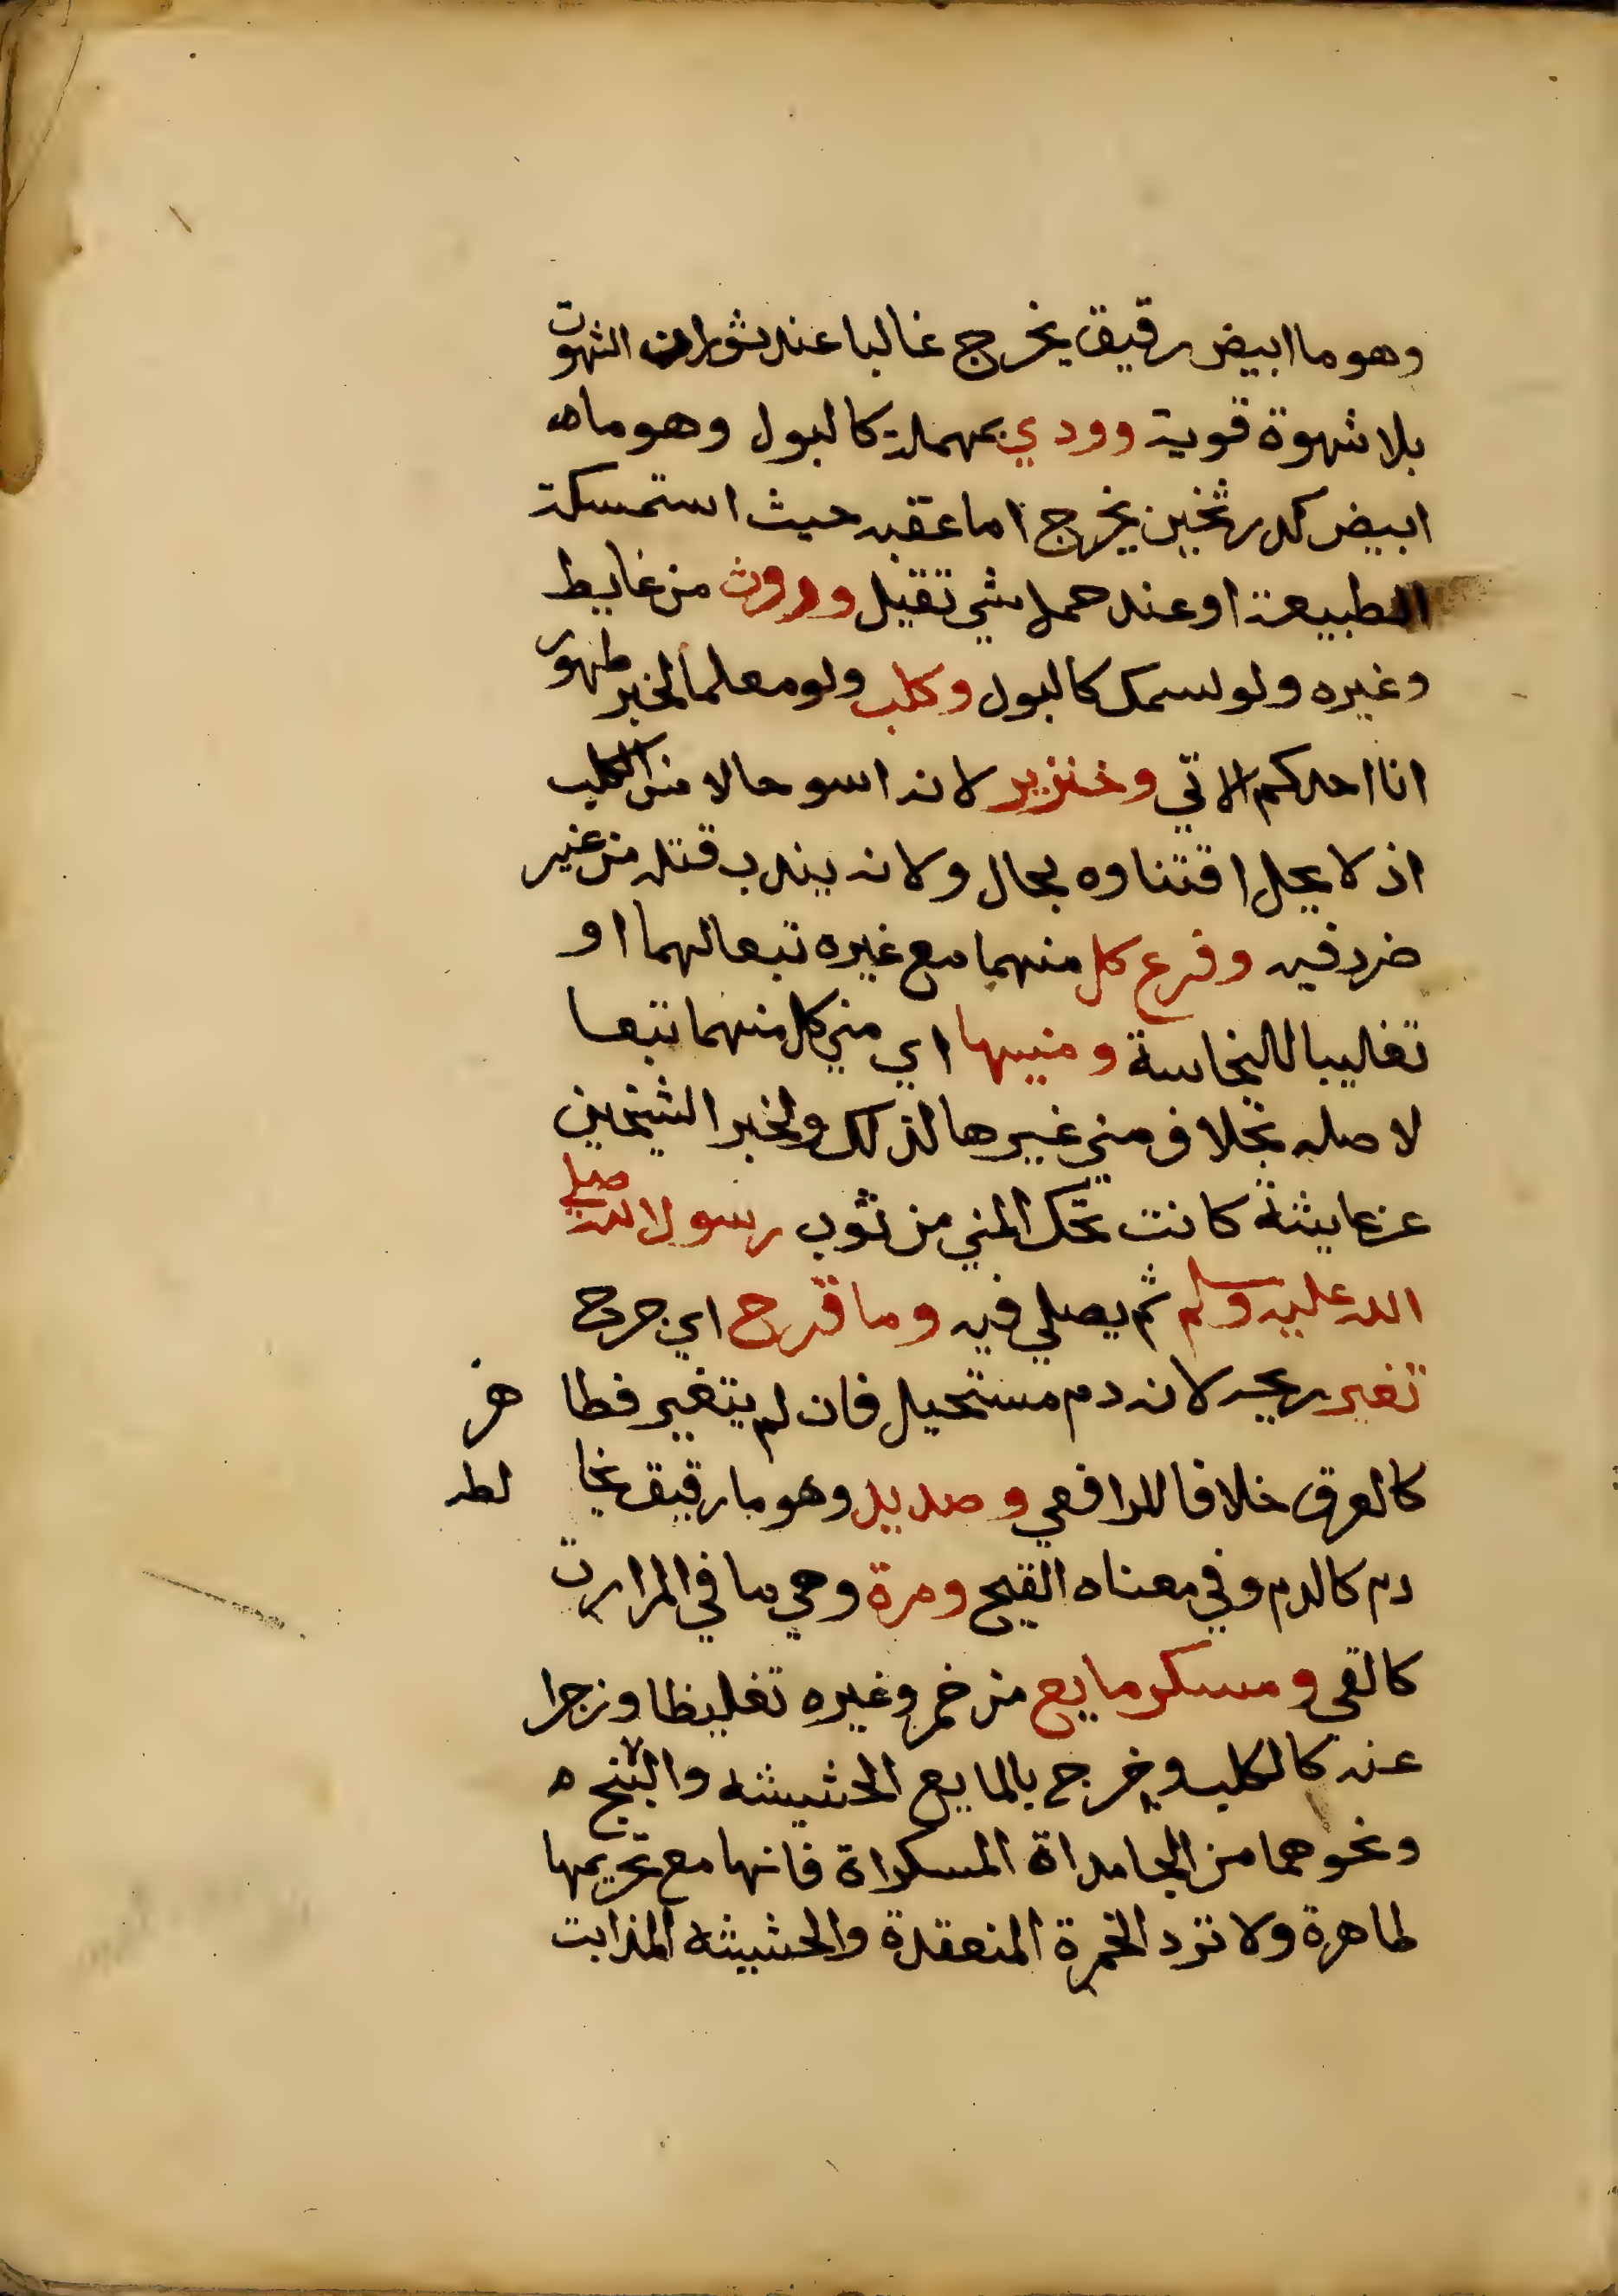 وهو ما ابيض رقيق يخرج غالبا عند ثوران الشهوت
بلا شهوة قوية وودي بمهملة كالبول وهو ماه
ابيض كدر ثخين يخرج اما عقبه حيث استمسكة
الطبيعة او عند حمل شي تقيل وروث من غايط
وغيره ولو لسمك كالبول وكلب ولو معلما لخبر طهور
انا احدكم الاتي وخنزير لانه اسو حالا من الكلب
اذ لا يحل اقتناوه بحال ولانه يندب قتله من غير
ضرر فيه وفرع كل منهما مع غيره تبعا لهما او
تغليبا للنجاسة ومنيها اي مني كل منهما تبعا
لاصله بخلاف مني غيرها لذلك ولخبر الشيخين
عن عايشة كانت تحك المني من ثوب رسول الله صلي
الله عليه وسلم ثم يصلي فيه وما قرح اي جرح
تغير ريحه لانه دم مستحيل فان لم يتغير فطا هر
كالعرق خلافا للرافعي وصديد وهو ما رقيق يخا لطه
دم كالدم وفي معناه القيح ومرة وهي ما في المرارت
كالقي ومسكر مايع من خمر وغيره تغليظا وزجرا
عنه كالكلب وخرج بالمايع الحشيشه والبنج ه
ونحوهما من الجامداة المسكراة فانها مع تحريمها
طاهرة ولا ترد الخمرة المنعقدة والحشيشه المذابت